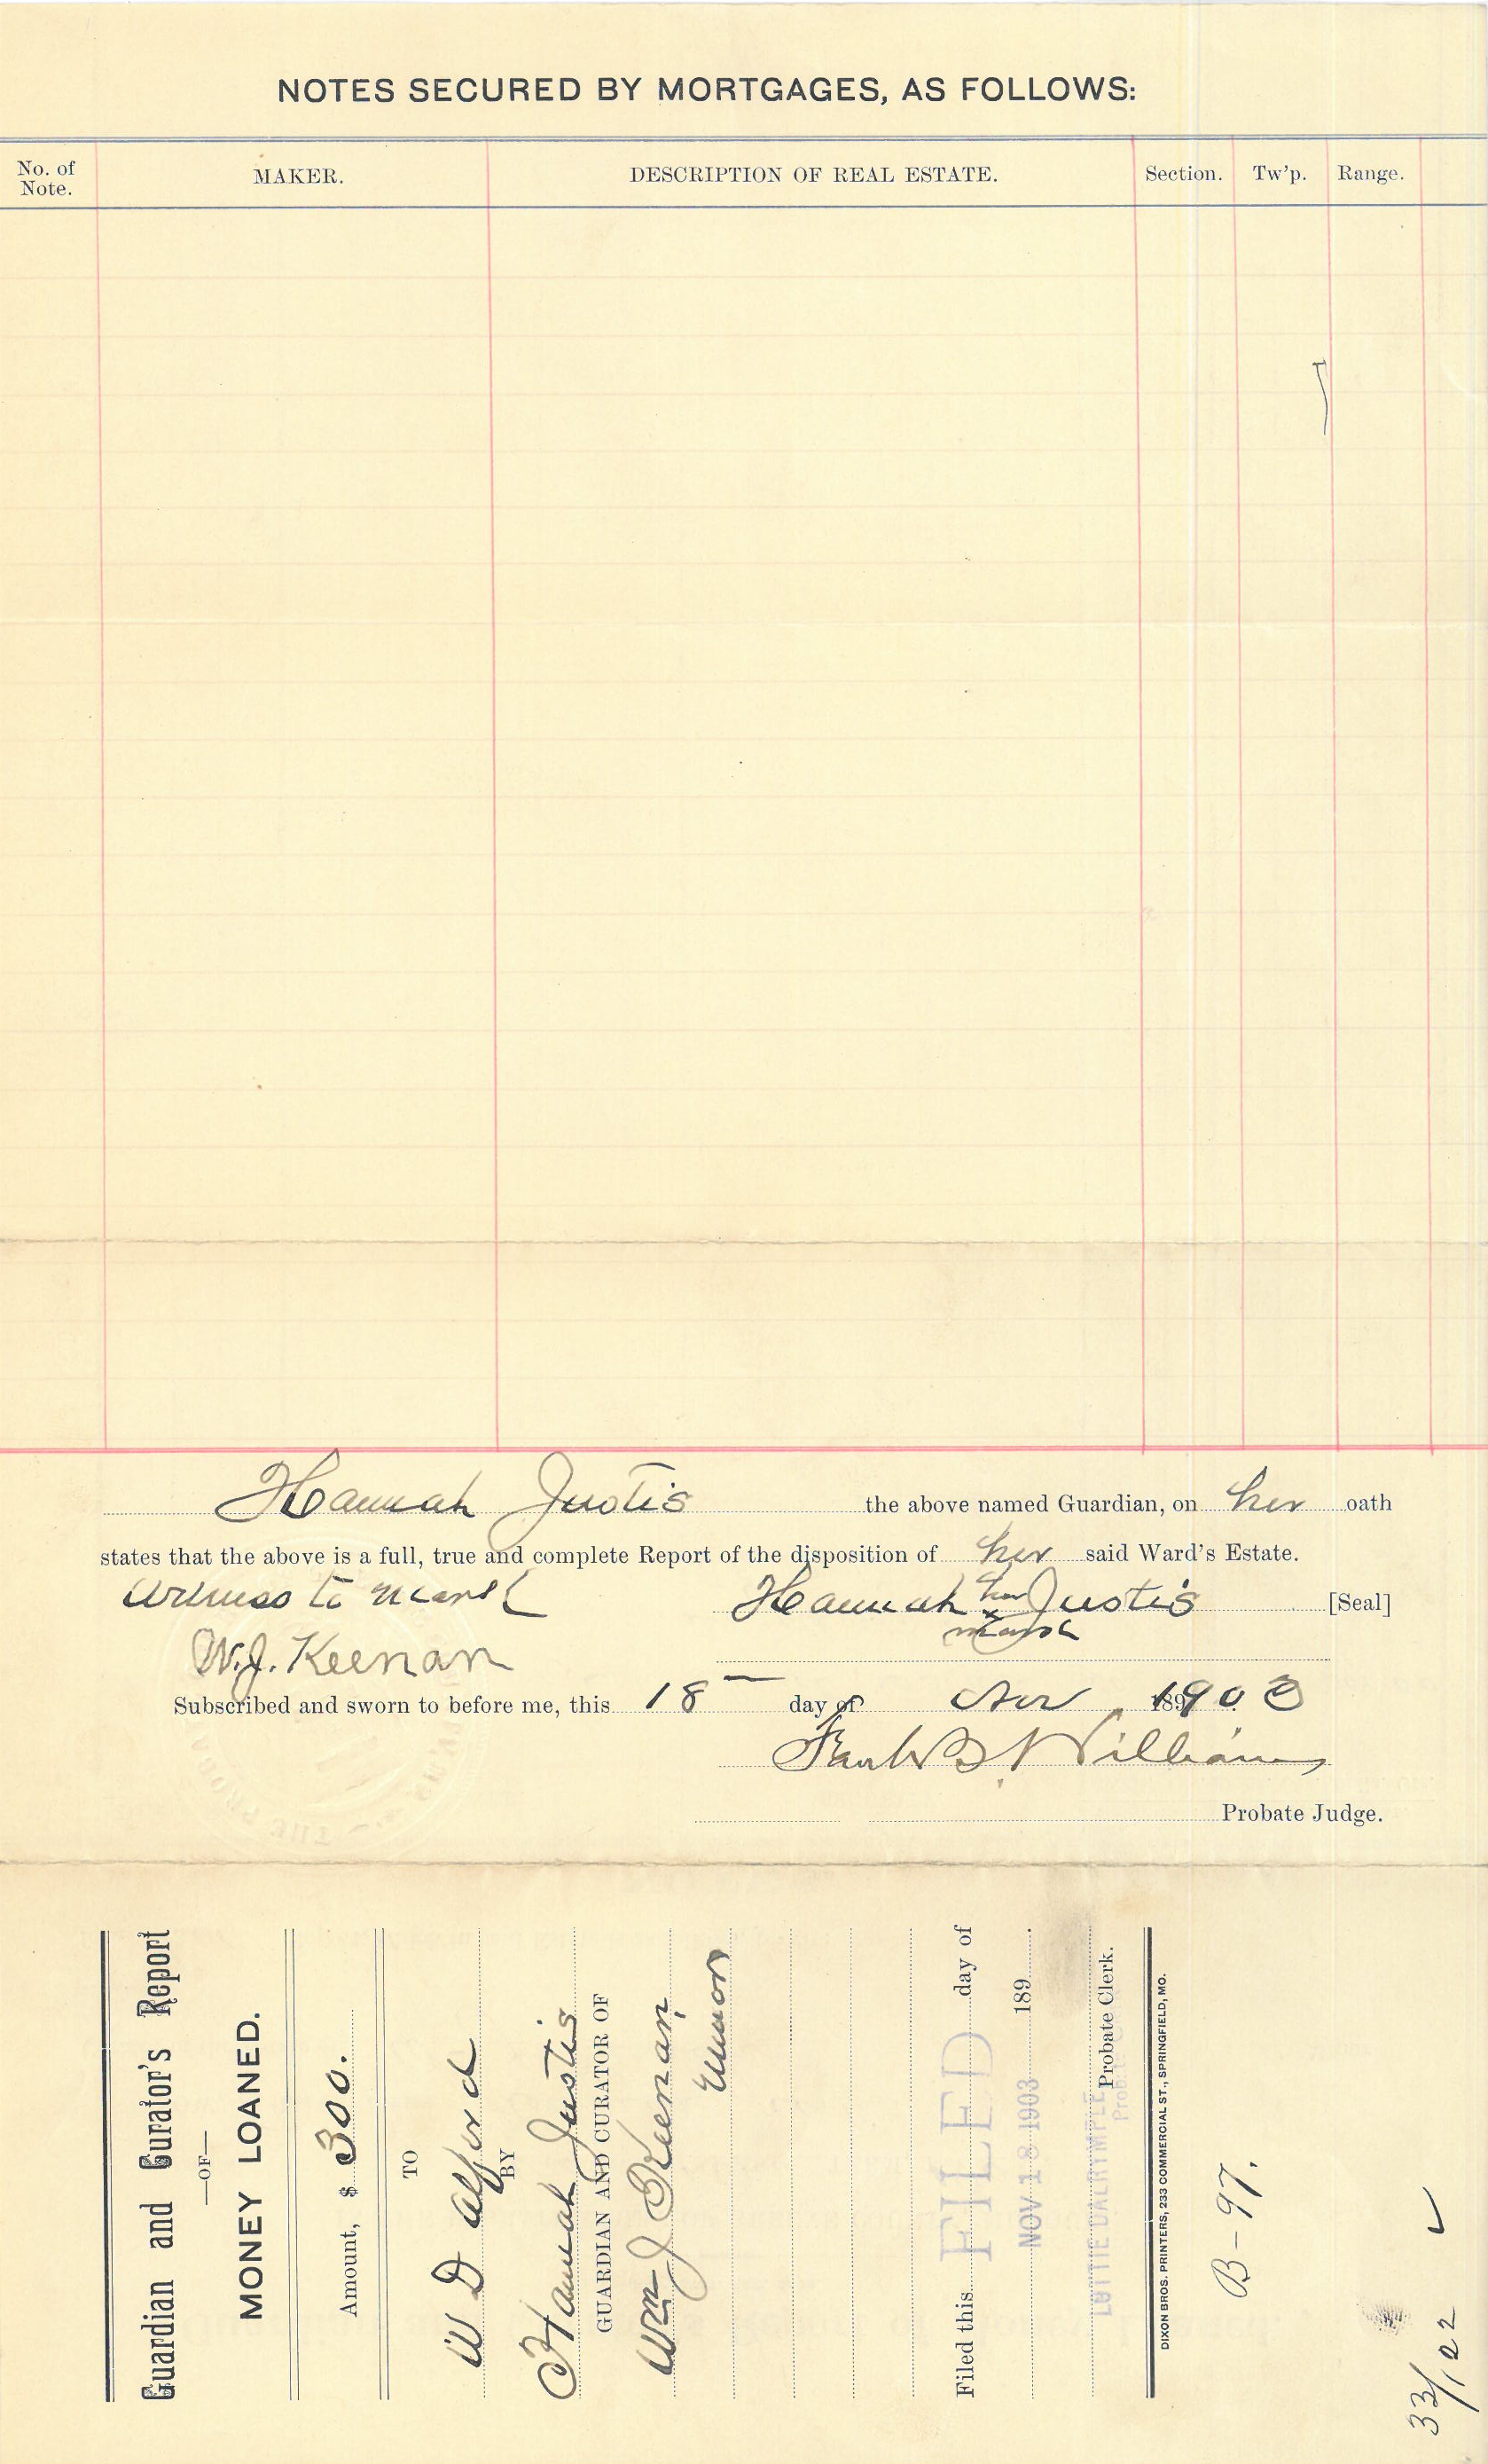 NOTES SECURED BY MORTGAGES, AS FOLLOWS:
No. of Note. MAKER. DESCRIPTION OF REAL ESTATE. Section. Tw'p. Range.
Hannah Justis the above named Guardian, on her oath
states that the above is a full, true and complete Report of the disposition of her said Ward's Estate.
Witness to mark Hannah her Justis [Seal]
x
mark
W.J. Keenan
Subscribed and sworn to before me, this 18 day of Nov 1903
Williams
Probate Judge.
Guardian and Curator's Report
—OF—
MONEY LOANED.
Amount, $ 300.
TO
W D Alford
BY
Hannah Justis
GUARDIAN AND CURATOR OF
Wm J Keenan
Minor
Filed this day of
FILED
189
NOV 18 1903
LOTTIE DALRYMPLE
Probate Clerk.
DIXON BROS. PRINTERS, 233 COMMERCIAL ST., SPRINGFIELD, MO.
B-97.
33/122